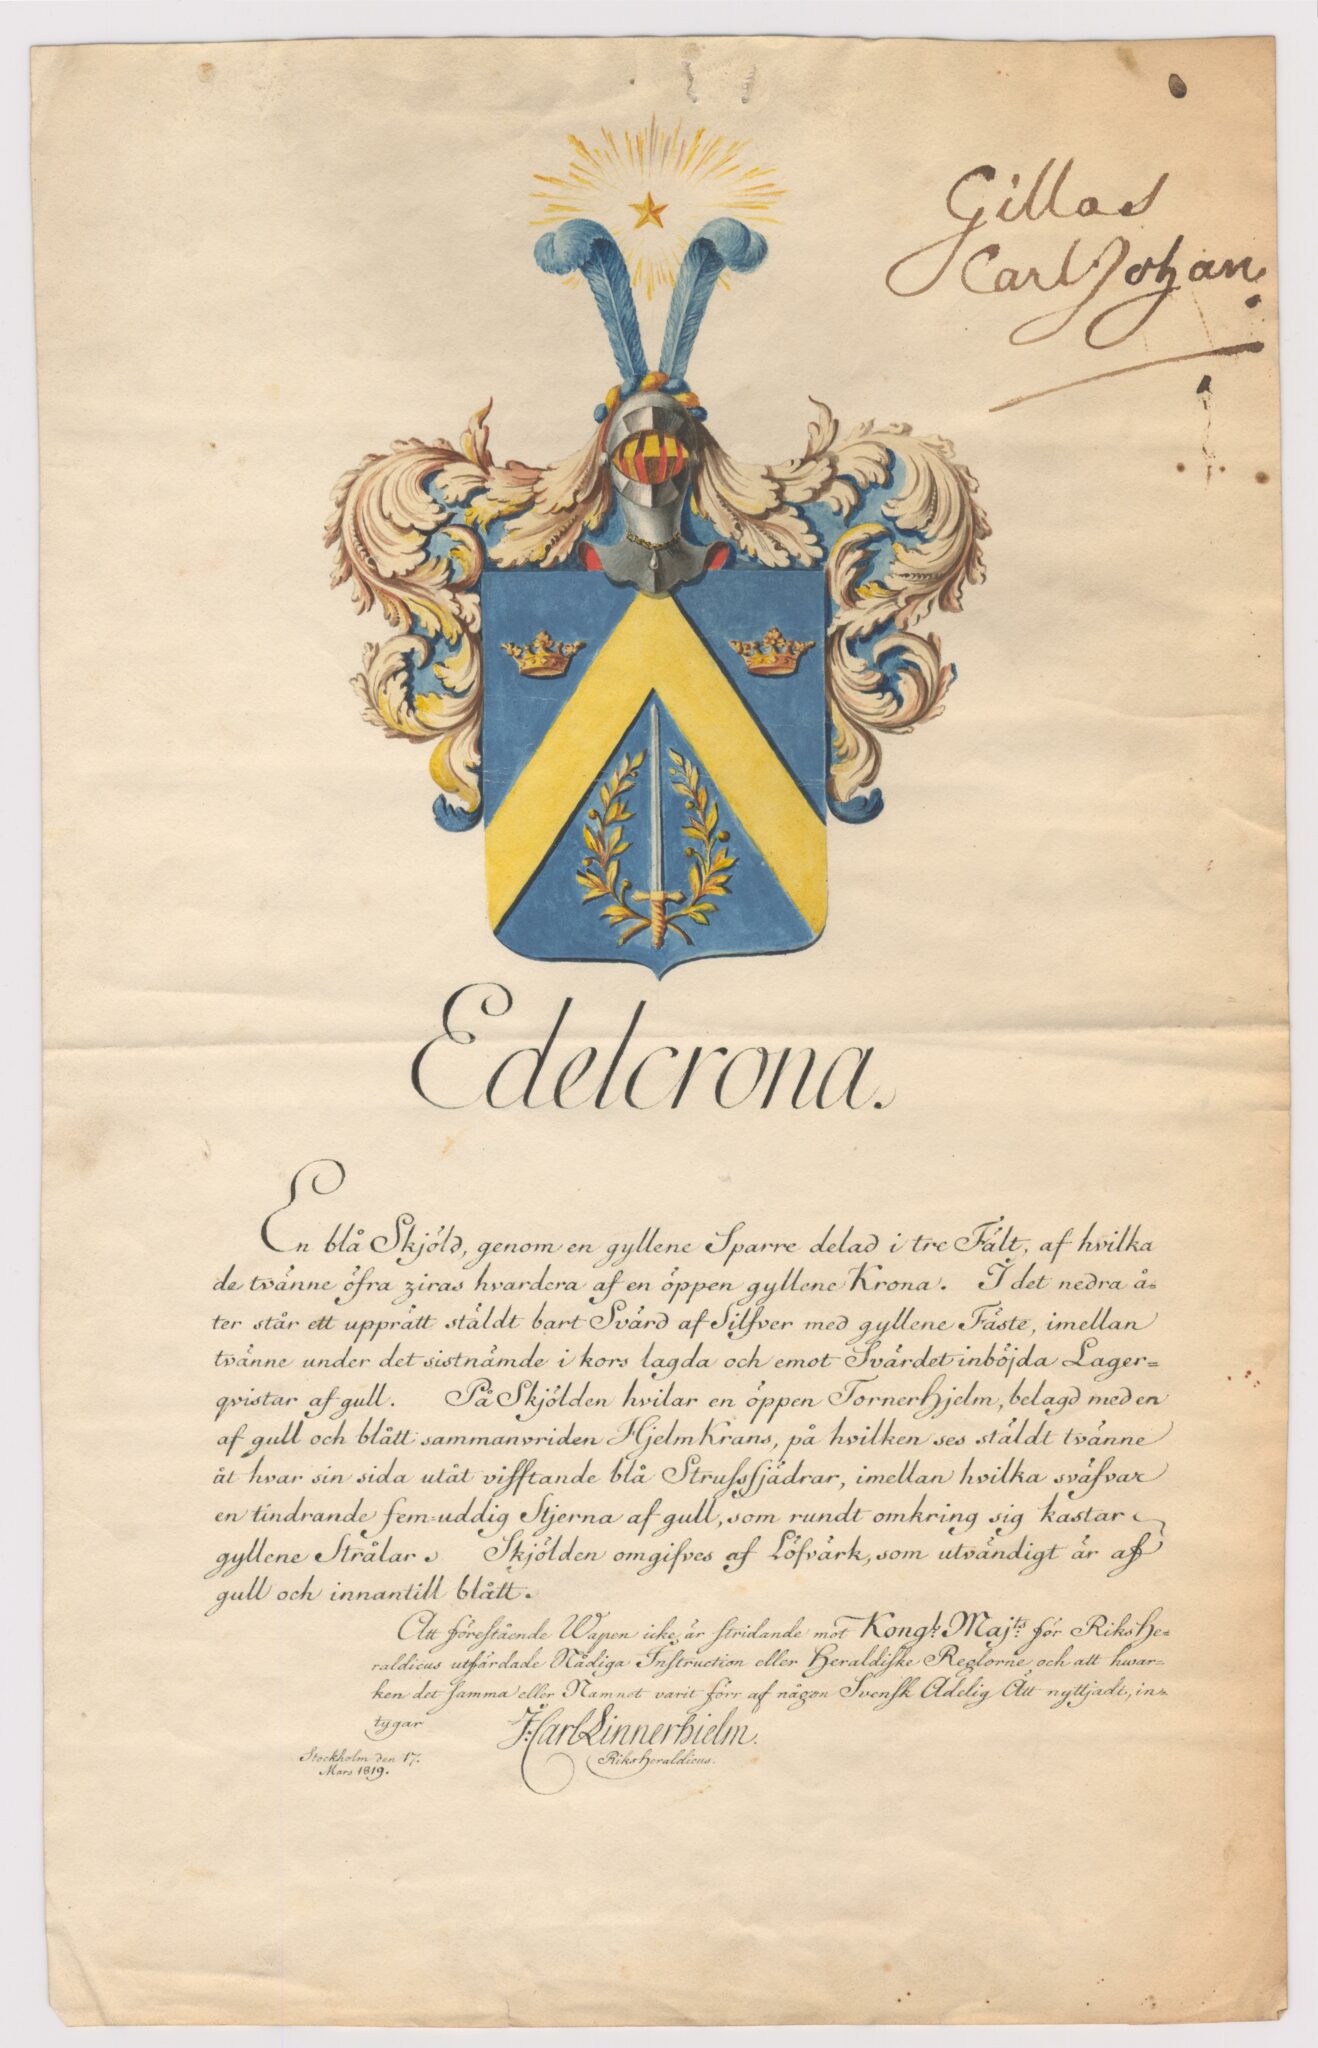 Gillas
Carl Johan
Edelcrona.
En blå Skjöld, genom en gyllene Sparre delad i tre Fält, af hvilka
de tvänne öfra ziras hvardera af en öppen gyllene Krona. I det nedra å-
ter står ett upprätt stäldt bart Svärd af Silfver med gyllene Fäste, imellan
tvänne under det sistnämde i kors lagda och emot Svärdet inböjda Lager=
qvistar af gull. På Skjölden hvilar en öppen Tornerhjelm, belagd med en
af gull och blått sammanvriden HjelmKrans, på hvilken ses stäldt tvänne
åt hvar sin sida utåt vifftande blå Strussfjädrar, imellan hvilka sväfvar
en tindrande fem-uddig Stjerna af gull, som rundt omkring sig kastar
gyllene Strålar. Skjölden omgifves af Löfvärk, som utvändigt är af
gull och innantill blått.
Att förestående Wapen icke är stridande mot Kongl. Majts. för RiksHe=
raldicus utfärdade Nådiga Instruction eller Heraldiske Reglorne och att hwar=
ken det samma eller Namnet varit förr af någon Svensk Adelig Ätt nyttjadt, in=
tygar J: Carl Linnerhielm.
Stockholm den 17. RiksHeraldicus.
Mars 1819.